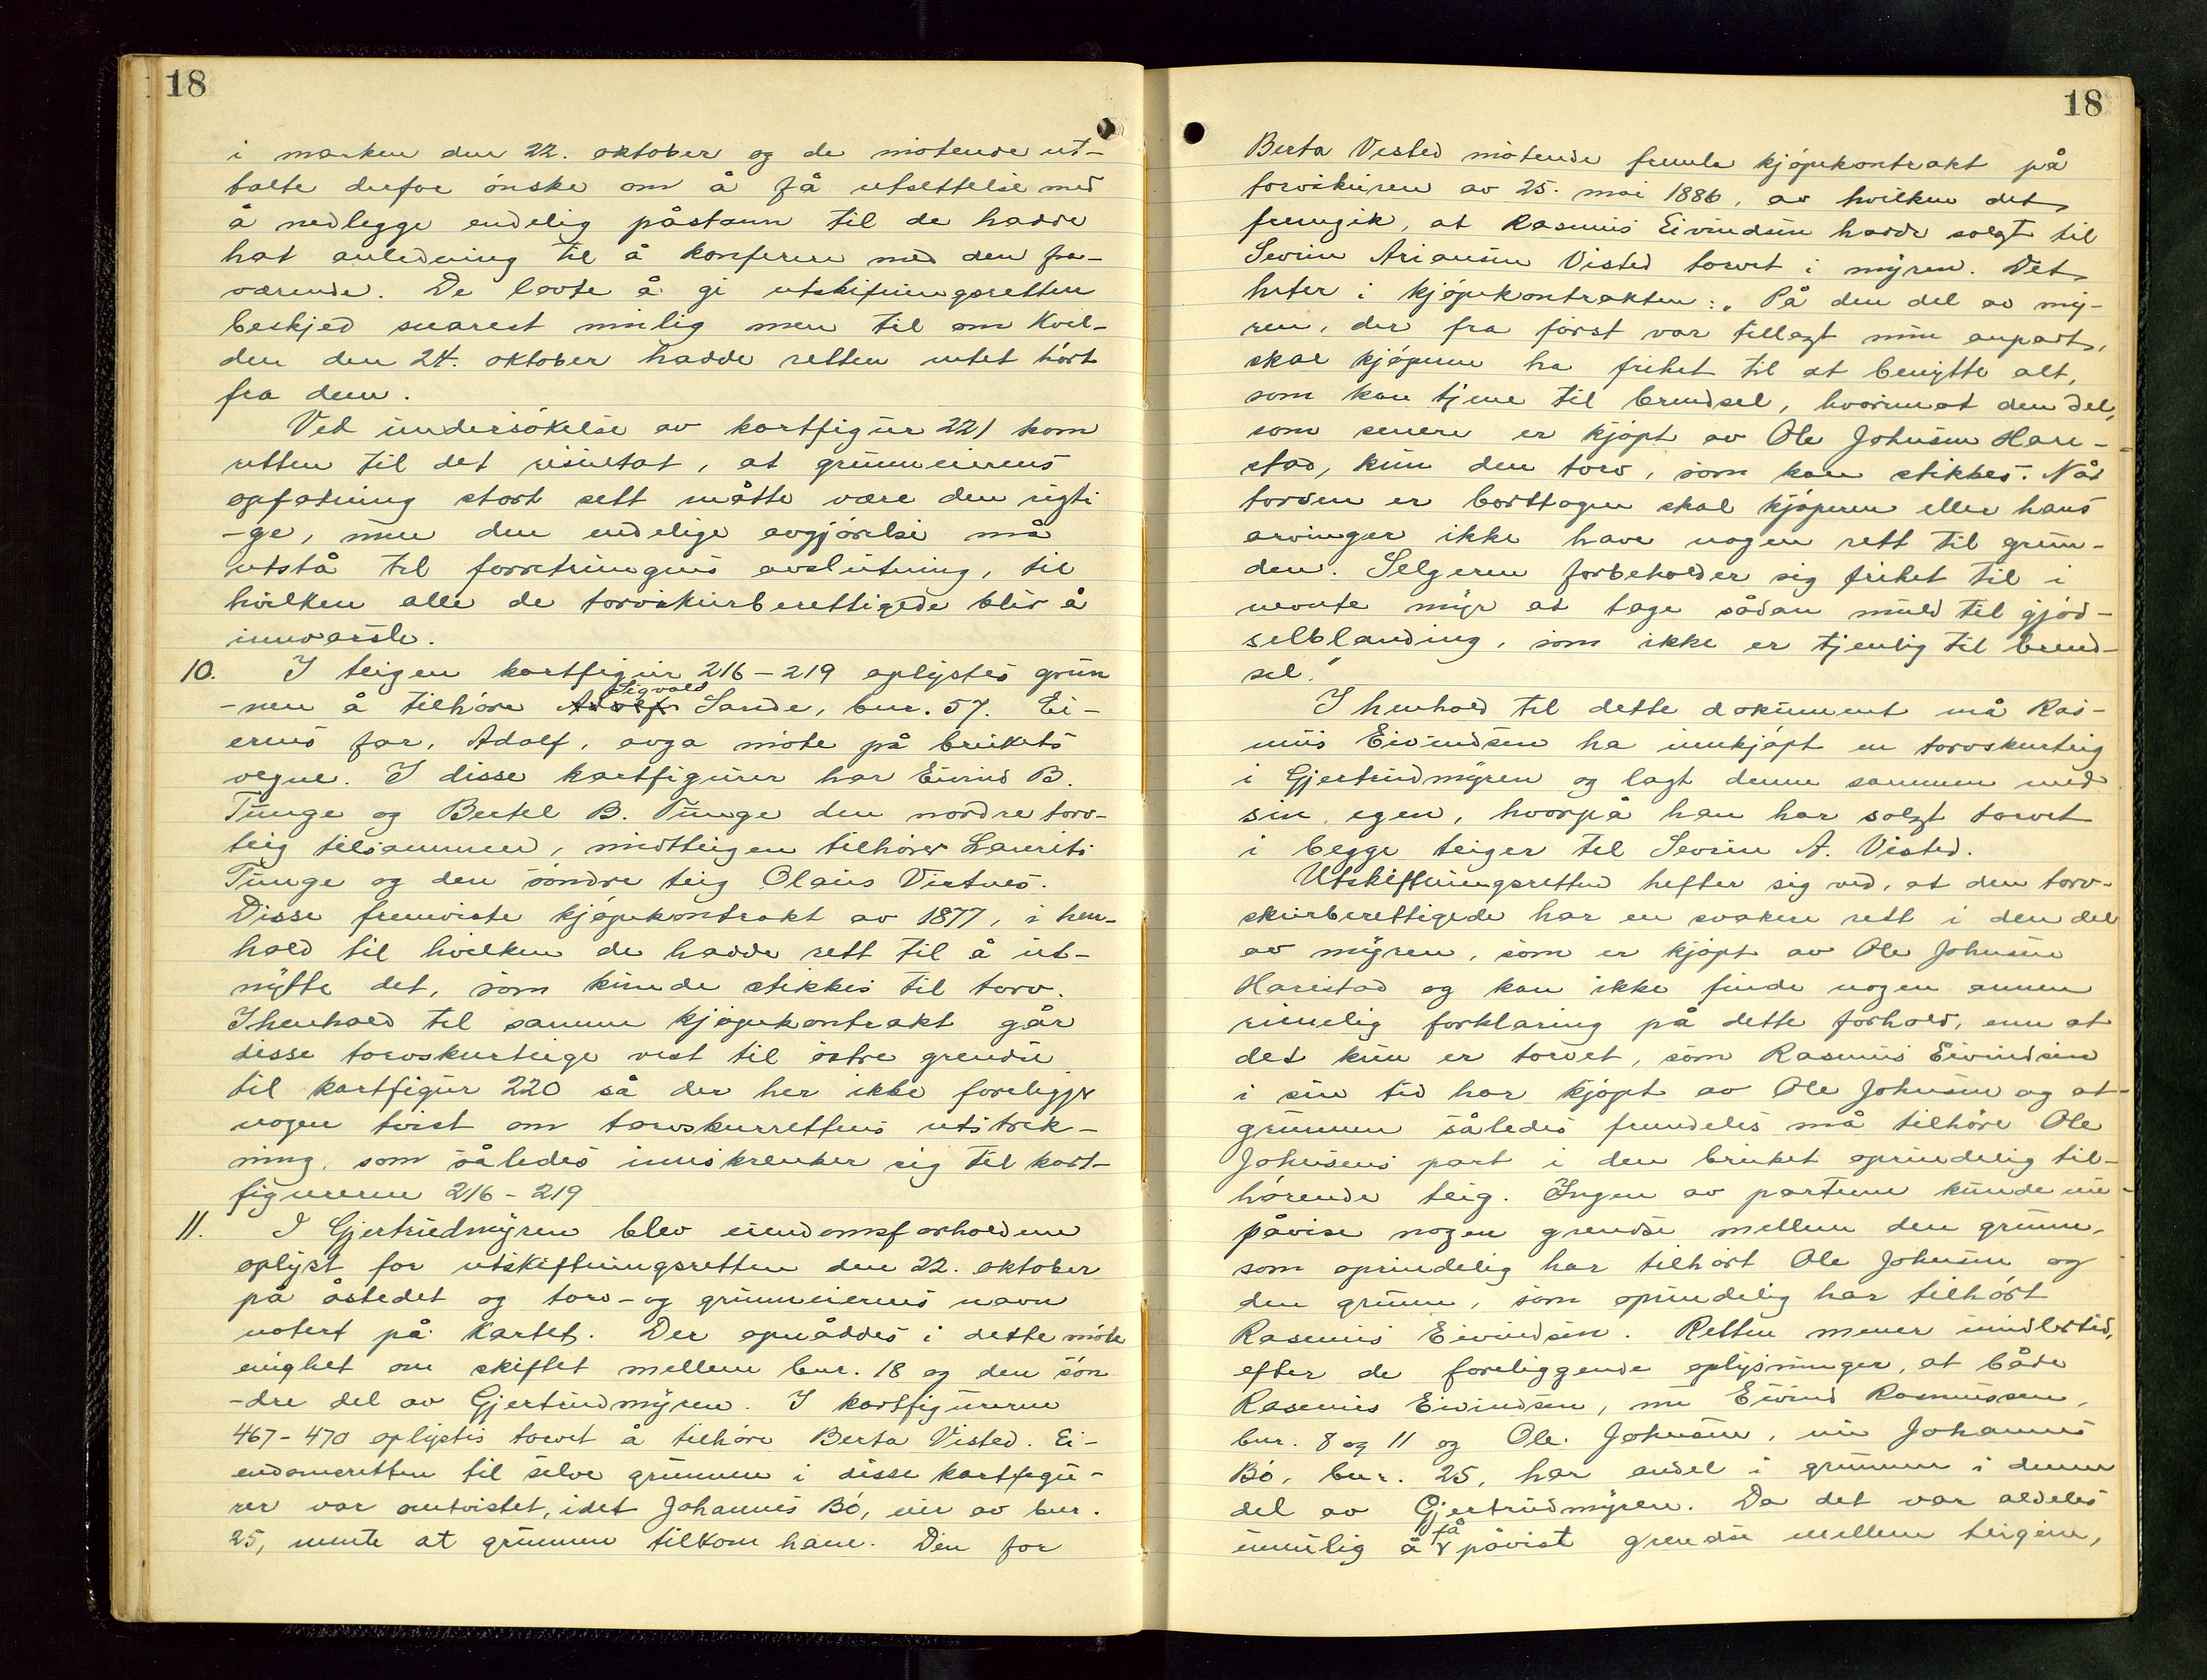 18
i marken den 22. oktober og de møtende ut-
talte derfor ønske om å få utsettelse med
å nedlegge endelig påstann til de hadde
hat anledning til å konferere med den fra-
værende. De lovte å gi utskiftningsretten
beskjed snarest mulig men til om kvel-
den den 24. oktober hadde retten intet hørt
fra dem.
Ved undersøkelse av kartfigur 221 kom
retten til det resultat, at grunneierens
opfatning stort sett måtte være den rigti
-ge, men den endelige avgjørelse må
utstå til forretningens avslutning, til
hvilken alle de torvskurberettigede blir å
innvarsle.
10. I teigen kartfigur 216-219 oplystes grun
-nen å tilhøre Adolf Sigvald Sande, bnr. 57. Ei-
erens far, Adolf, avga møte på brukets
vegne. I disse kartfigurer har Eivind B.
Tunge og Bertel B. Tunge den nordre torv-
teig tilsammen, midtteigen tilhører Laurits
Tunge og den søndre teig Olaus Vistnes.
Disse fremviste kjøpekontrakt av 1877, i hen-
hold til hvilken de hadde rett til å ut-
nytte det, som kunde stikkes til torv.
I henhold til samme kjøpekontrakt går
disse torvskurteige vest til østre grendse
til kartfigur 220 så der her ikke foreligger
nogen tvist om torvskurrettens utstrek-
ning, som således innskrenker sig til kart-
figurerne 216-219
11. I Gjertrudmyren blev eiendomsforholdene
oplyst for utskiftningsretten den 22. oktober
på åstedet og torv- og grunneierens navn
notert på kartet. Der opnåddes i dette møte
enighet om skiftet mellem bnr. 18 og den søn
-dre del av Gjertrudmyren. I kartfigurerne
467-470 oplystes torvet å tilhøre Berta Visted. Ei-
endomsretten til selve grunnen i disse kartfigu-
rer var omtvistet, idet Johannes Bø, eier av bnr.
25, mente at grunnen tilkom ham. Den for
18
Berta Visted møtende fremla kjøpekontrakt på
torvskuren av 25. mai 1886, av hvilken det
fremgik, at Rasmus Eivindsen hadde solgt til
Sevrin Ariansen Visted torvet i myren. Det
heter i kjøpekontrakten: "På den del av my-
ren, der fra først var tillagt min anpart,
skal kjøperen ha frihet til at benytte alt,
som kan tjene til brendsel, hvorimot den del,
som senere er kjøpt av Ole Johnsen Hare-
stad, kun den torv, som kan stikkes. Når
torven er borttagen skal kjøperen eller hans
arvinger ikke have nogen rett til grun-
den. Selgeren forbeholder sig frihet til i
nevnte myr at tage sådan muld til gjød-
selblanding, som ikke er tjenlig til brend-
sel."
I henhold til dette dokument må Ras-
mus Eivindsen ha innkjøpt en torvskurteig
i Gjertrudmyren og lagt denne sammen med
sin egen, hvorpå han har solgt torvet
i begge teiger til Sevrin A. Visted.
Utskiftningsretten hefter sig ved, at den torv-
skurberettigede har en svakere rett i den del
av myren, som er kjøpt av Ole Johnsen
Harestad og kan ikke finde nogen annen
rimelig forklaring på dette forhold, enn at
det kun er torvet, som Rasmus Eivindsen
i sin tid har kjøpt av Ole Johnsen og at
grunnen således fremdeles må tilhøre Ole
Johnsens part i den bruket oprindelig til-
hørende teig. Ingen av partene kunde nu
påvise nogen grendse mellem den grunn,
som oprindelig har tilhørt Ole Johnsen og
den grunn, som oprindelig har tilhørt
Rasmus Eivindsen. Retten mener imidlertid,
efter de foreliggende oplysninger, at både
Rasmus Eivindsen, nu Eivind Rasmussen,
bnr. 8 og 11 og Ole Johnsen, nu Johannes
Bø, bnr. 25, har andel i grunnen i denne
del av Gjertrudmyren. Da det var aldeles
umulig å få påvist grendse mellem teigene,